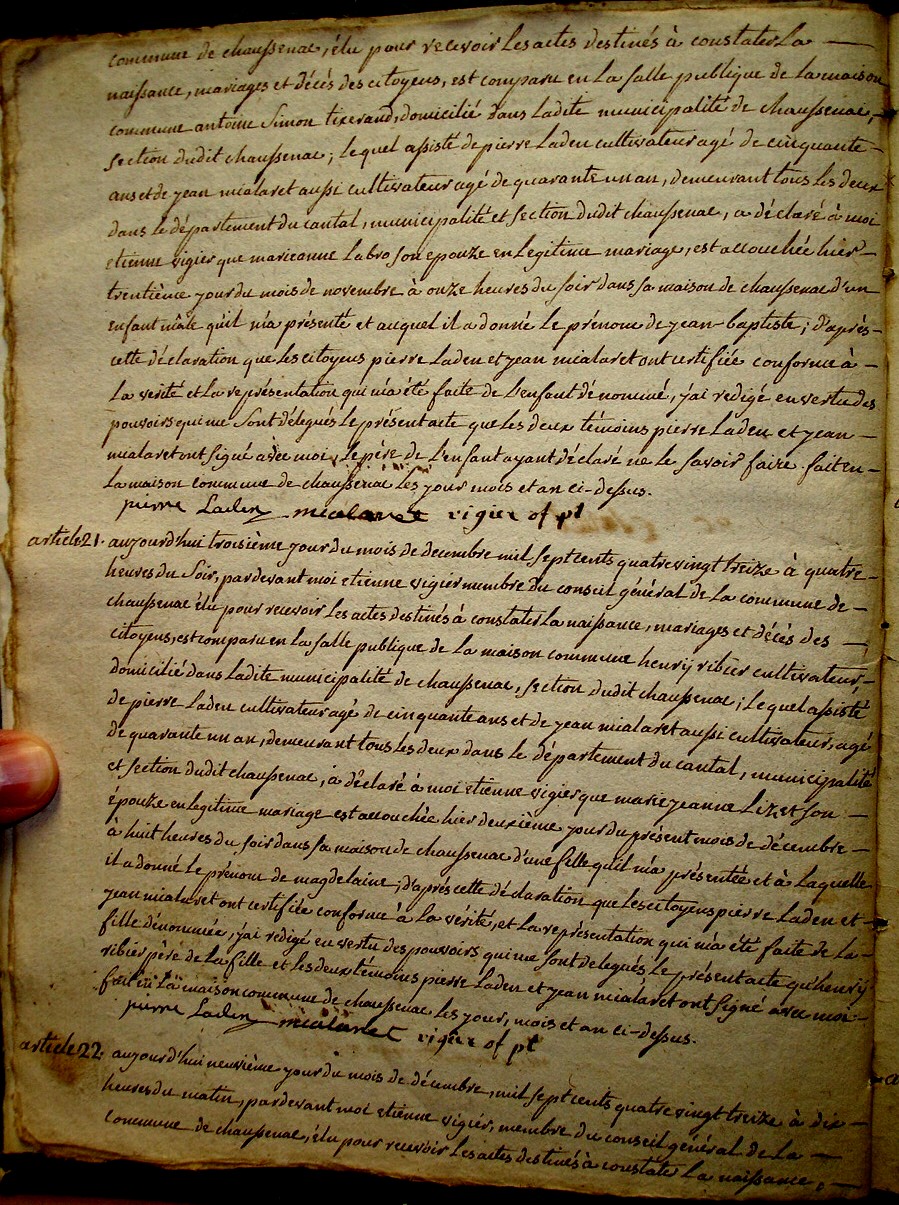 commune de chaussenac, élu pour recevoir les actes destinés à constater la —
naissance, mariages et décès des citoyens, est comparu en la salle publique de la maison
commune antoine Simon tixerand, domicilié dans ladite municipalité de chaussenac, -
section dudit chaussenac; lequel assisté de pierre Laden cultivateur agé de cinquante -
ans et de jean mialaret aussi cultivateur agé de quarante un an, demeurant tous les deux
dans le département du cantal, municipalité et section dudit chaussenac, a déclaré à moi
etienne vigier que marieanne Labro son epouze en legitime mariage, est accouchée hier -
trentième jour du mois de novembre à onze heures du soir dans sa maison de chaussenac d'un
enfant mâle qu'il m'a présenté et auquel il a donné le prénom de jean-baptiste; d'après -
cette déclaration que les citoyens pierre Laden et jean mialaret ont certifiée conforme à -
la verité et la représentation qui m'a été faite de l'enfant dénomé, j'ai redigé en vertu des
pouvoirs qui me sont délegués le présent acte que les deux témoins pierre Laden et jean —
mialaret ont signé avec moi, le père de l'enfant ayant déclaré ne le savoir faire. fait en -
la maison commune de chaussenac les jour mois et an ci-dessus.
pierre Laden mialaret vigier of pt
article 21. aujourd'hui troisième jour du mois de decembre mil sept cents quatre vingt treize à quatre -
heures du soir, pardevant moi etienne vigier membre du conseil général de la commune de -
chaussenac élu pour recevoir les actes destinés à constater la naissance, mariages et décès des —
citoyens, est comparu en la salle publique de la maison commune henrij ribier cultivateur, -
domicilié dans ladite municipalité de chaussenac, section dudit chaussenac; lequel assisté
de pierre Laden cultivateur agé de cinquante ans et de jean mialaret aussi cultivateur, agé
de quarante un an, demeurant tous les deux dans le département du cantal, municipalité
et section dudit chaussenac, a déclaré à moi etienne vigier que marie jeanne Lizet son -
épouze en legitime mariage est accouchée hier deuxième jour du présent mois de décembre -
à huit heures du soir dans sa maison de chaussenac d'une fille qu'il m'a présentée et à laquelle
il a donné le prénom de magdelaine; d'après cette déclaration que les citoyens pierre Laden et -
jean mialaret ont certifiée conforme à la vérité, et la représentation qui m'a été faite de la -
fille dénomée, j'ai redigé en vertu des pouvoirs qui me sont delegués le présent acte qu'henrij
ribier père de la fille et les deux témoins pierre Laden et jean mialaret ont signé avec moi -
fait en la maison commune de chaussenac les jour, mois et an ci-dessus.
pierre Laden mialaret vigier of pt
article 22. aujourd'hui neuvième jour du mois de décembre, mil sept cents quatre vingt treize à dix -
heures du matin, pardevant moi etienne vigier, membre du conseil général de la —
commune de chaussenac, élu pour recevoir les actes destinés à constater la naissance, —